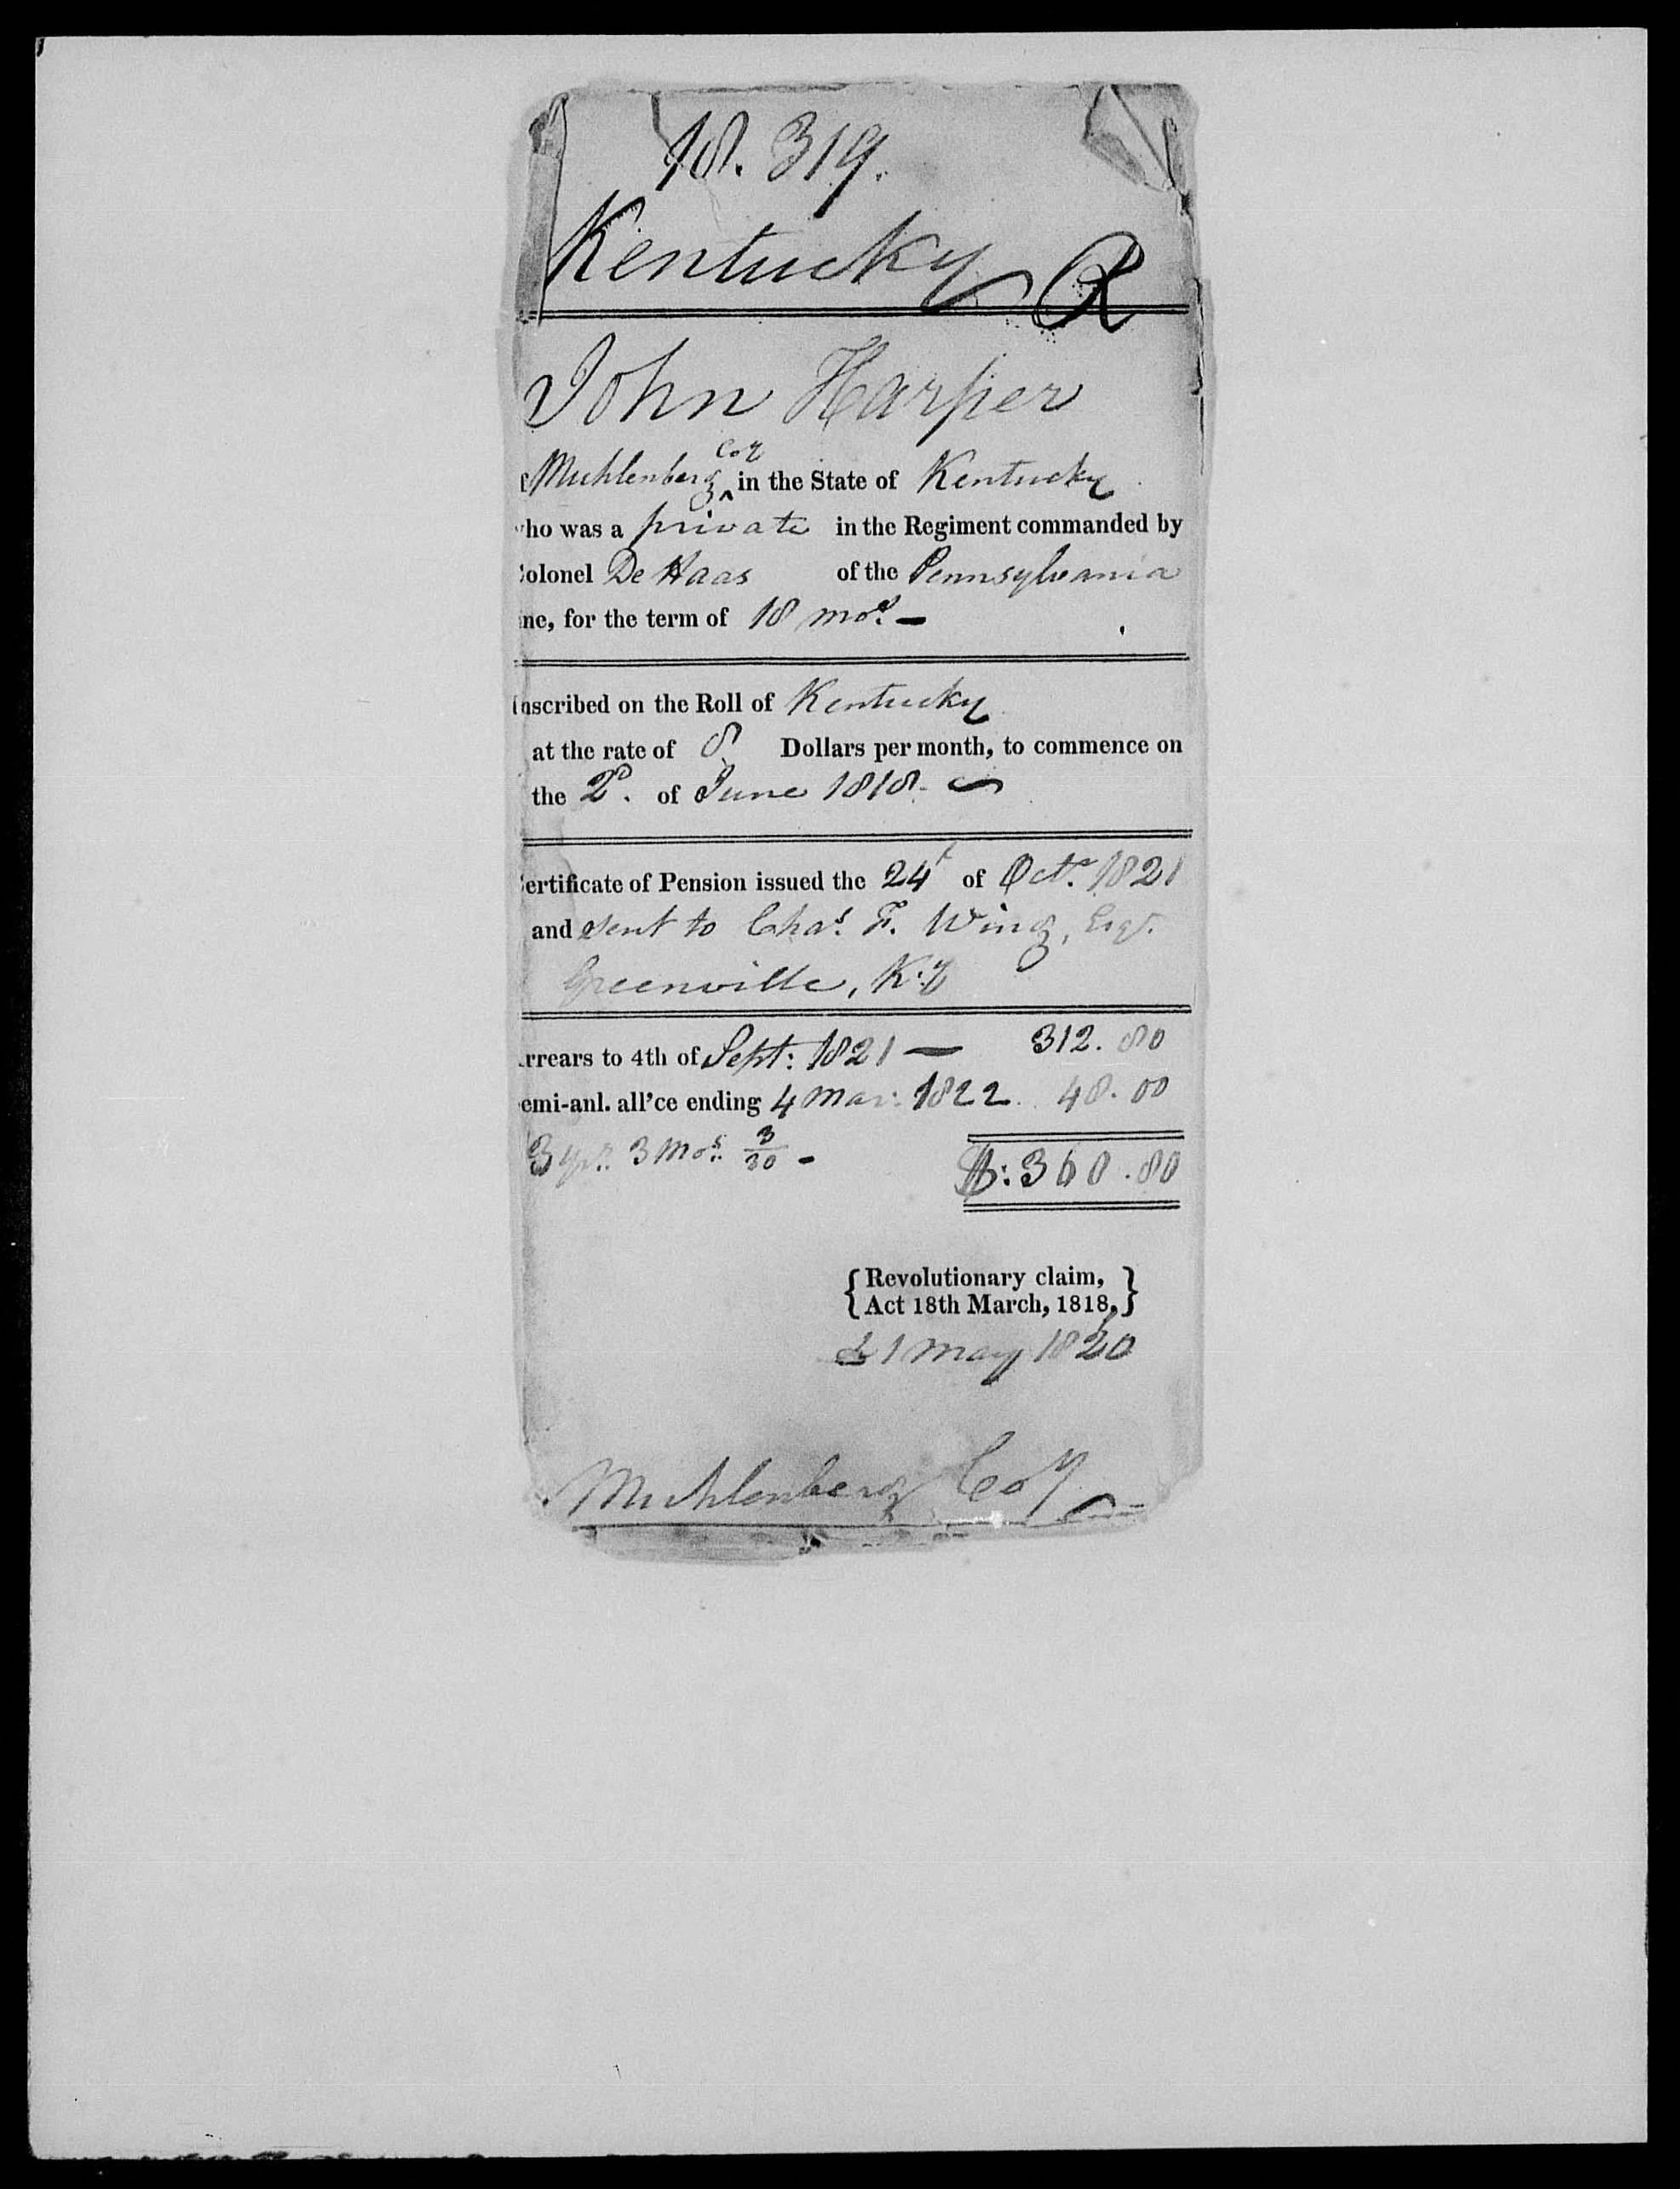 18.319.
Kentucky R
John Harper
Muhlenberg Coy in the State of Kentucky
who was a private in the Regiment commanded by
Colonel De Haas of the Pennsylvania
ine, for the term of 18 mos. —
Inscribed on the Roll of Kentucky
at the rate of 8 Dollars per month, to commence on
the 2d. of June 1818.
Certificate of Pension issued the 24t of Octr. 1821
and sent to Chas. F. Wing, Esqr.
Greenville, K:y
rrears to 4th of Sept: 1821 — 312.80
emi-anl. all'ce ending 4 Mar: 1822. 48.00
3 yrs. 3 Mos. 3/30 - $:360.80
{Revolutionary claim,
Act 18th March, 1818,}
& 1 May 1820
Muhlenberg Coy